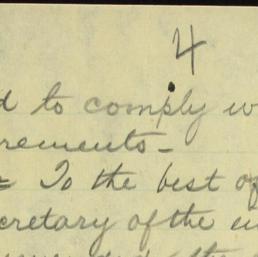 4
d to comply w
rements-
= To the best of
cretary of the